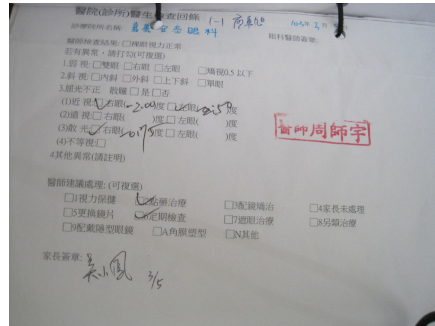 醫院(診所)醫生檢查回條 1-1
診療院所名稱: 眼科 眼科醫師簽章:
醫師檢查結果: □裸眼視力正常
若有異常, 請打勾(可複選)
1.弱 視: □雙眼 □右眼 □左眼 □矯視0.5 以下
2.斜 視: □內斜 □外斜 □上下斜 □單眼
3.屈光不正 散瞳 □ 是 □否
(1)近 視: □右眼( )度 □左眼( )度
(2)遠 視: □右眼( )度 □左眼( )度
(3)散 光: □右眼( )度 □左眼( )度
醫師周師宇
(4)不等視:□
4其他異常(請註明)
醫師建議處理: (可複選)
□1視力保健 □2點藥治療 □3配鏡矯治 □4家長未處理
□5更換鏡片 □6定期檢查 □7遮眼治療 □8另類治療
□9配戴隱型眼鏡 □A角膜塑型 □N其他
家長簽章: 吳小鳳 3/5